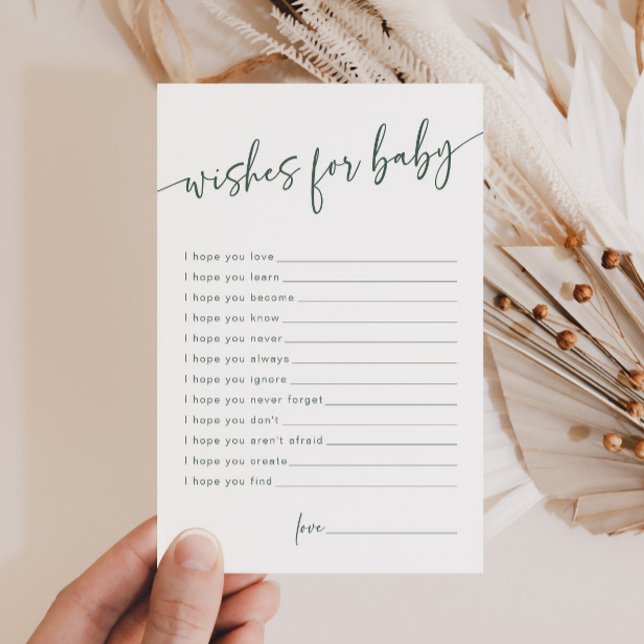 wishes for baby
I hope you love
I hope you learn
I hope you become
I hope you know
I hope you never
I hope you always
I hope you ignore
I hope you never forget
I hope you don't
I hope you aren't afraid
I hope you create
I hope you find
love